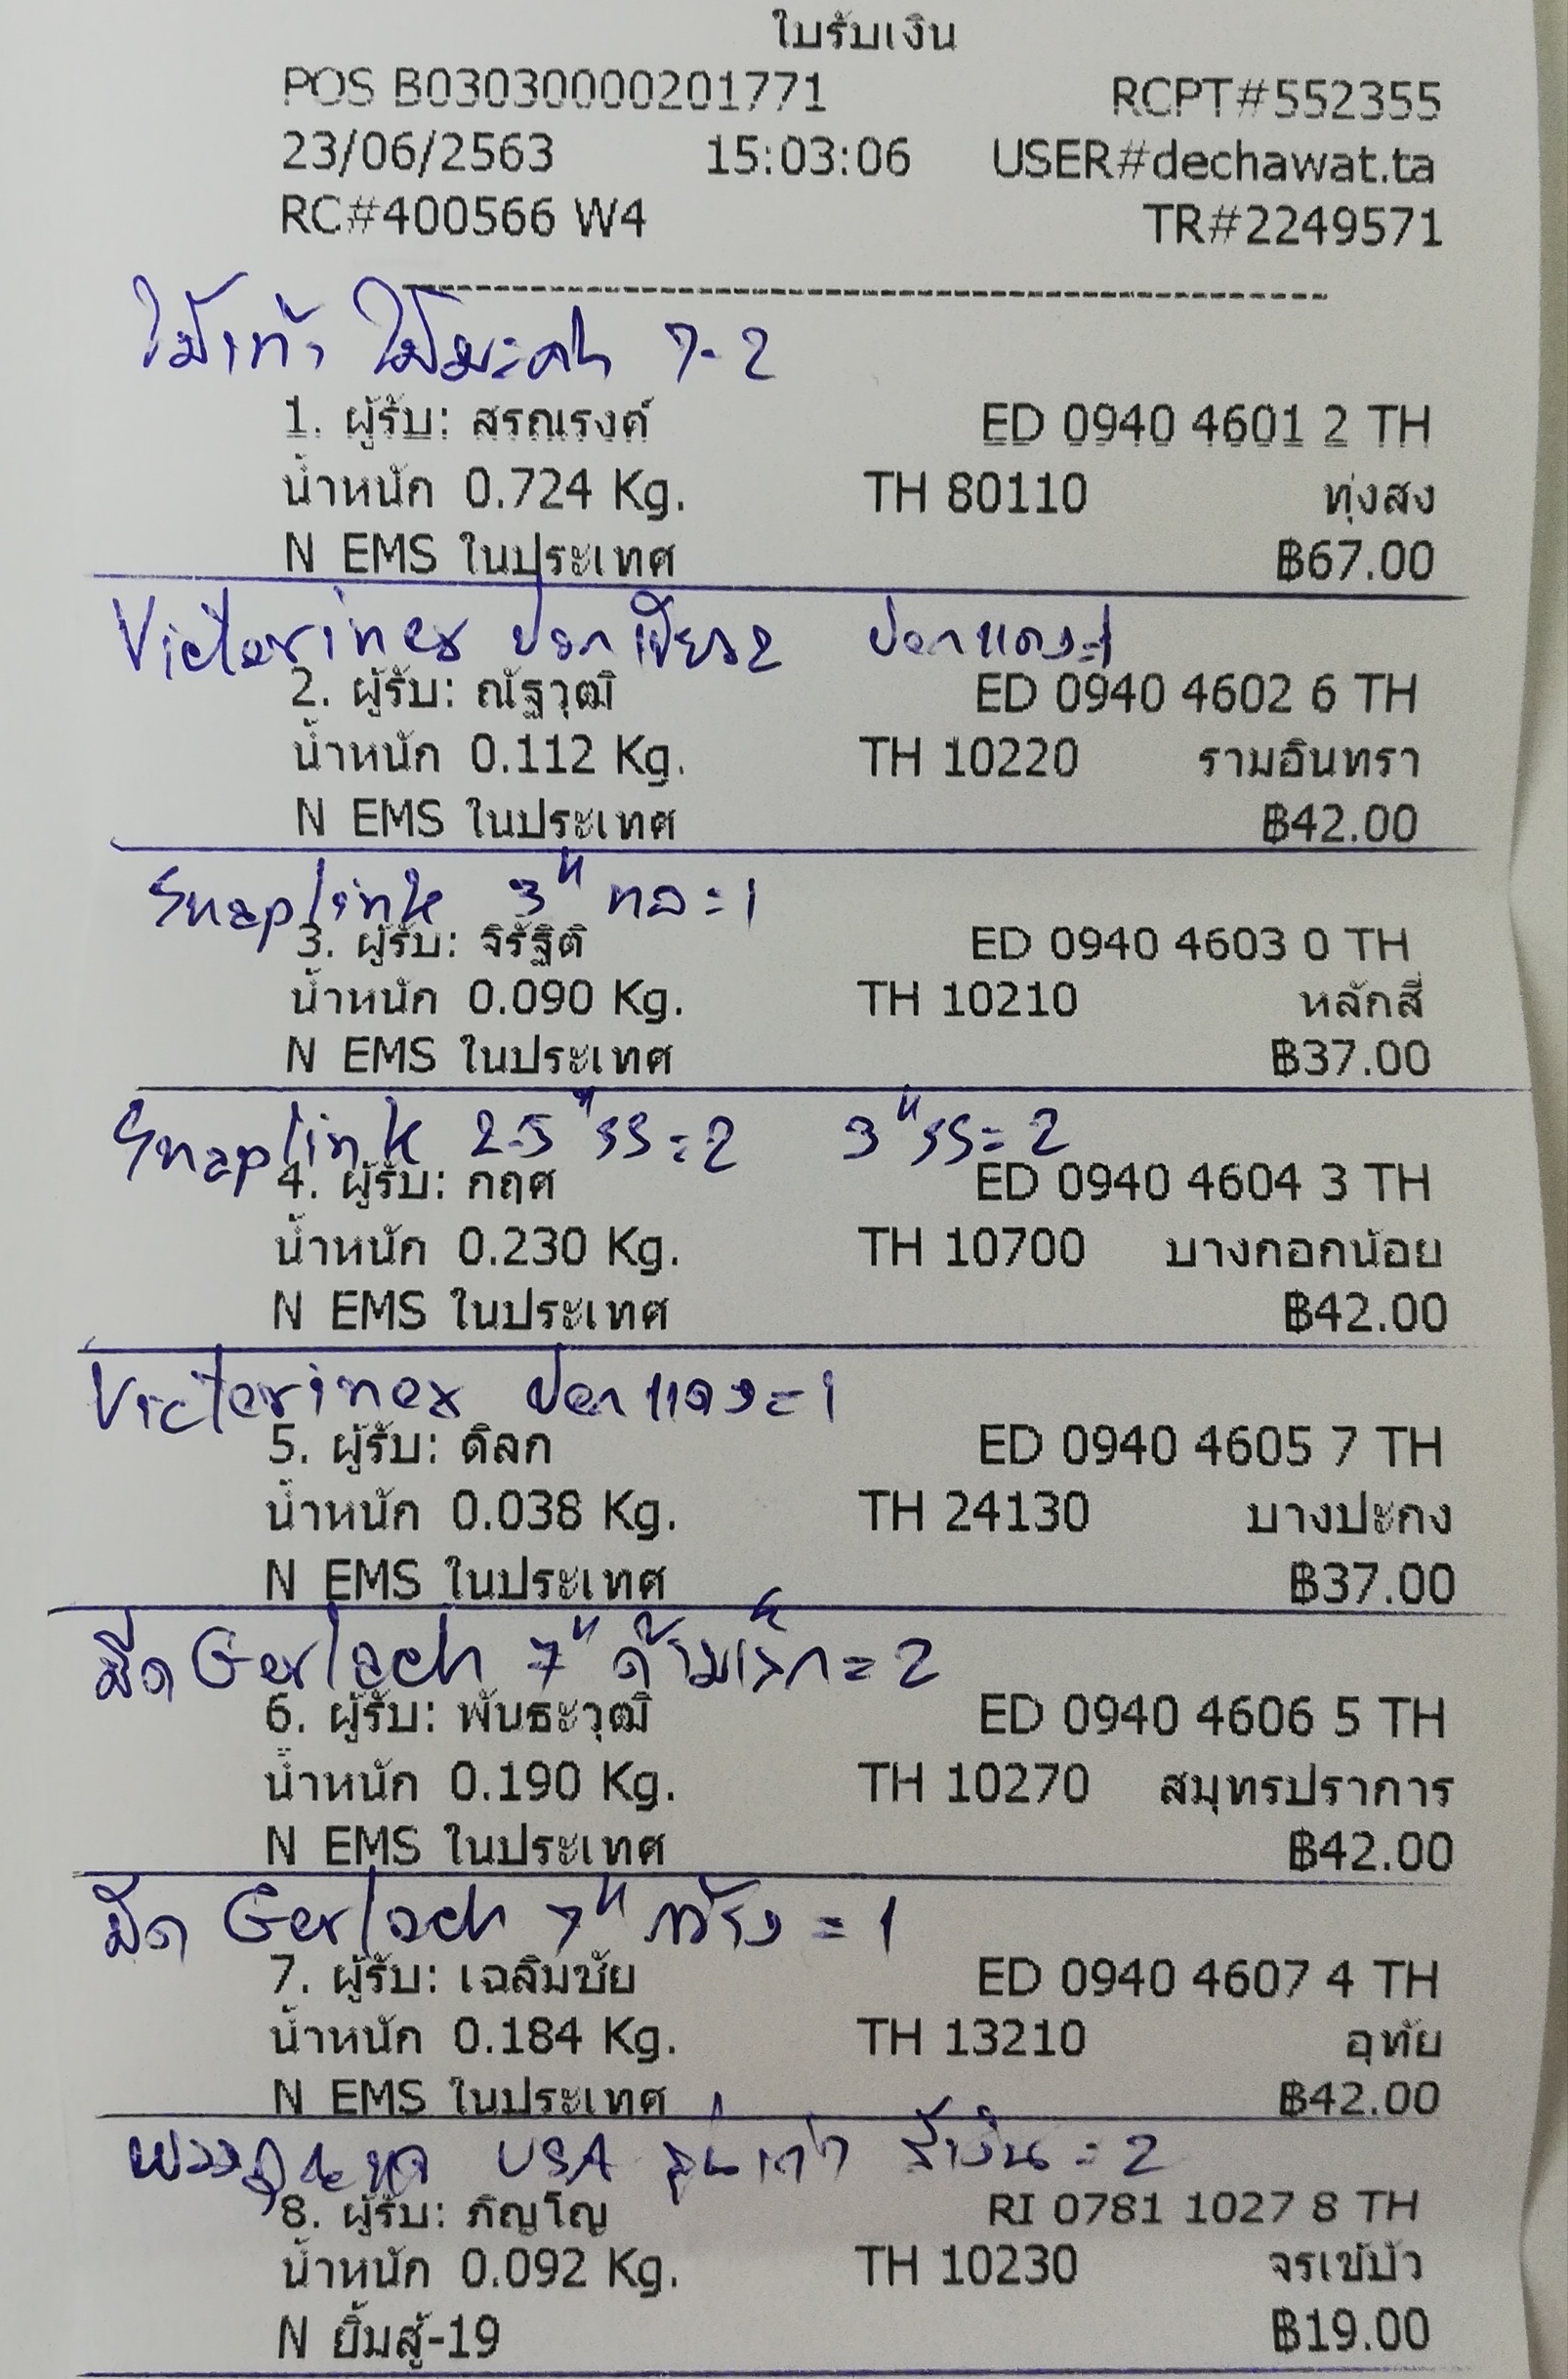 ใบรับเงิน
POS B03030000201771 RCPT#552355
23/06/2563 15:03:06 USER#dechawat.ta
RC#400566 W4 TR#2249571
ไม้เท้า ไม้มะค่า 7-2
1. ผู้รับ: สรณรงค์ ED 0940 4601 2 TH
น้ำหนัก 0.724 Kg. TH 80110 ทุ่งสง
N EMS ในประเทศ ฿67.00
Victorinox ปอกเขียว2 ปอกแดง=1
2. ผู้รับ: ณัฐวุฒิ ED 0940 4602 6 TH
น้ำหนัก 0.112 Kg. TH 10220 รามอินทรา
N EMS ในประเทศ ฿42.00
Snaplink 3" ทอ=1
3. ผู้รับ: จิรัฐิติ ED 0940 4603 0 TH
น้ำหนัก 0.090 Kg. TH 10210 หลักสี่
N EMS ในประเทศ ฿37.00
Snaplink 2.5" รร=2 3" รร=2
4. ผู้รับ: กฤศ ED 0940 4604 3 TH
น้ำหนัก 0.230 Kg. TH 10700 บางกอกน้อย
N EMS ในประเทศ ฿42.00
Victorinox ปอกแดง=1
5. ผู้รับ: ดิลก ED 0940 4605 7 TH
น้ำหนัก 0.038 Kg. TH 24130 บางปะกง
N EMS ในประเทศ ฿37.00
มีด Gerlach 7" ด้ามเล็ก=2
6. ผู้รับ: พันธะวุฒิ ED 0940 4606 5 TH
น้ำหนัก 0.190 Kg. TH 10270 สมุทรปราการ
N EMS ในประเทศ ฿42.00
มีด Gerlach 7" กว้าง=1
7. ผู้รับ: เฉลิมชัย ED 0940 4607 4 TH
น้ำหนัก 0.184 Kg. TH 13210 อุทัย
N EMS ในประเทศ ฿42.00
USA รุ่นเก่า สีเงิน=2
8. ผู้รับ: ภิญโญ RI 0781 1027 8 TH
น้ำหนัก 0.092 Kg. TH 10230 จรเข้บัว
N ยิ้มสู้-19 ฿19.00